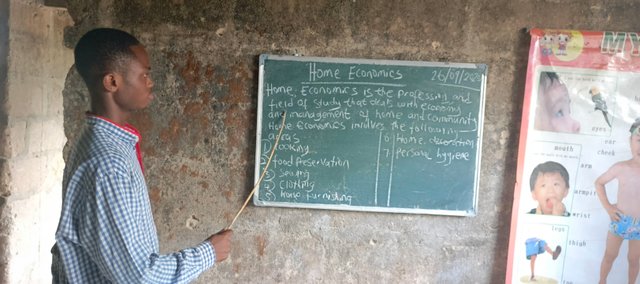 Home Economics 26/09/202
Home. Economics is the profession and
field of study that deals with economy
and management of home and community
Home Economics involves the following
areas
① Cooking
2 food preservation
③ Sewing
④ Clothing
⑤ home furnishing
6 Home decoration
7 personal hygiene
MY
eyes
ear
cheek
mouth
arm
armpit
wrist
legs
thigh